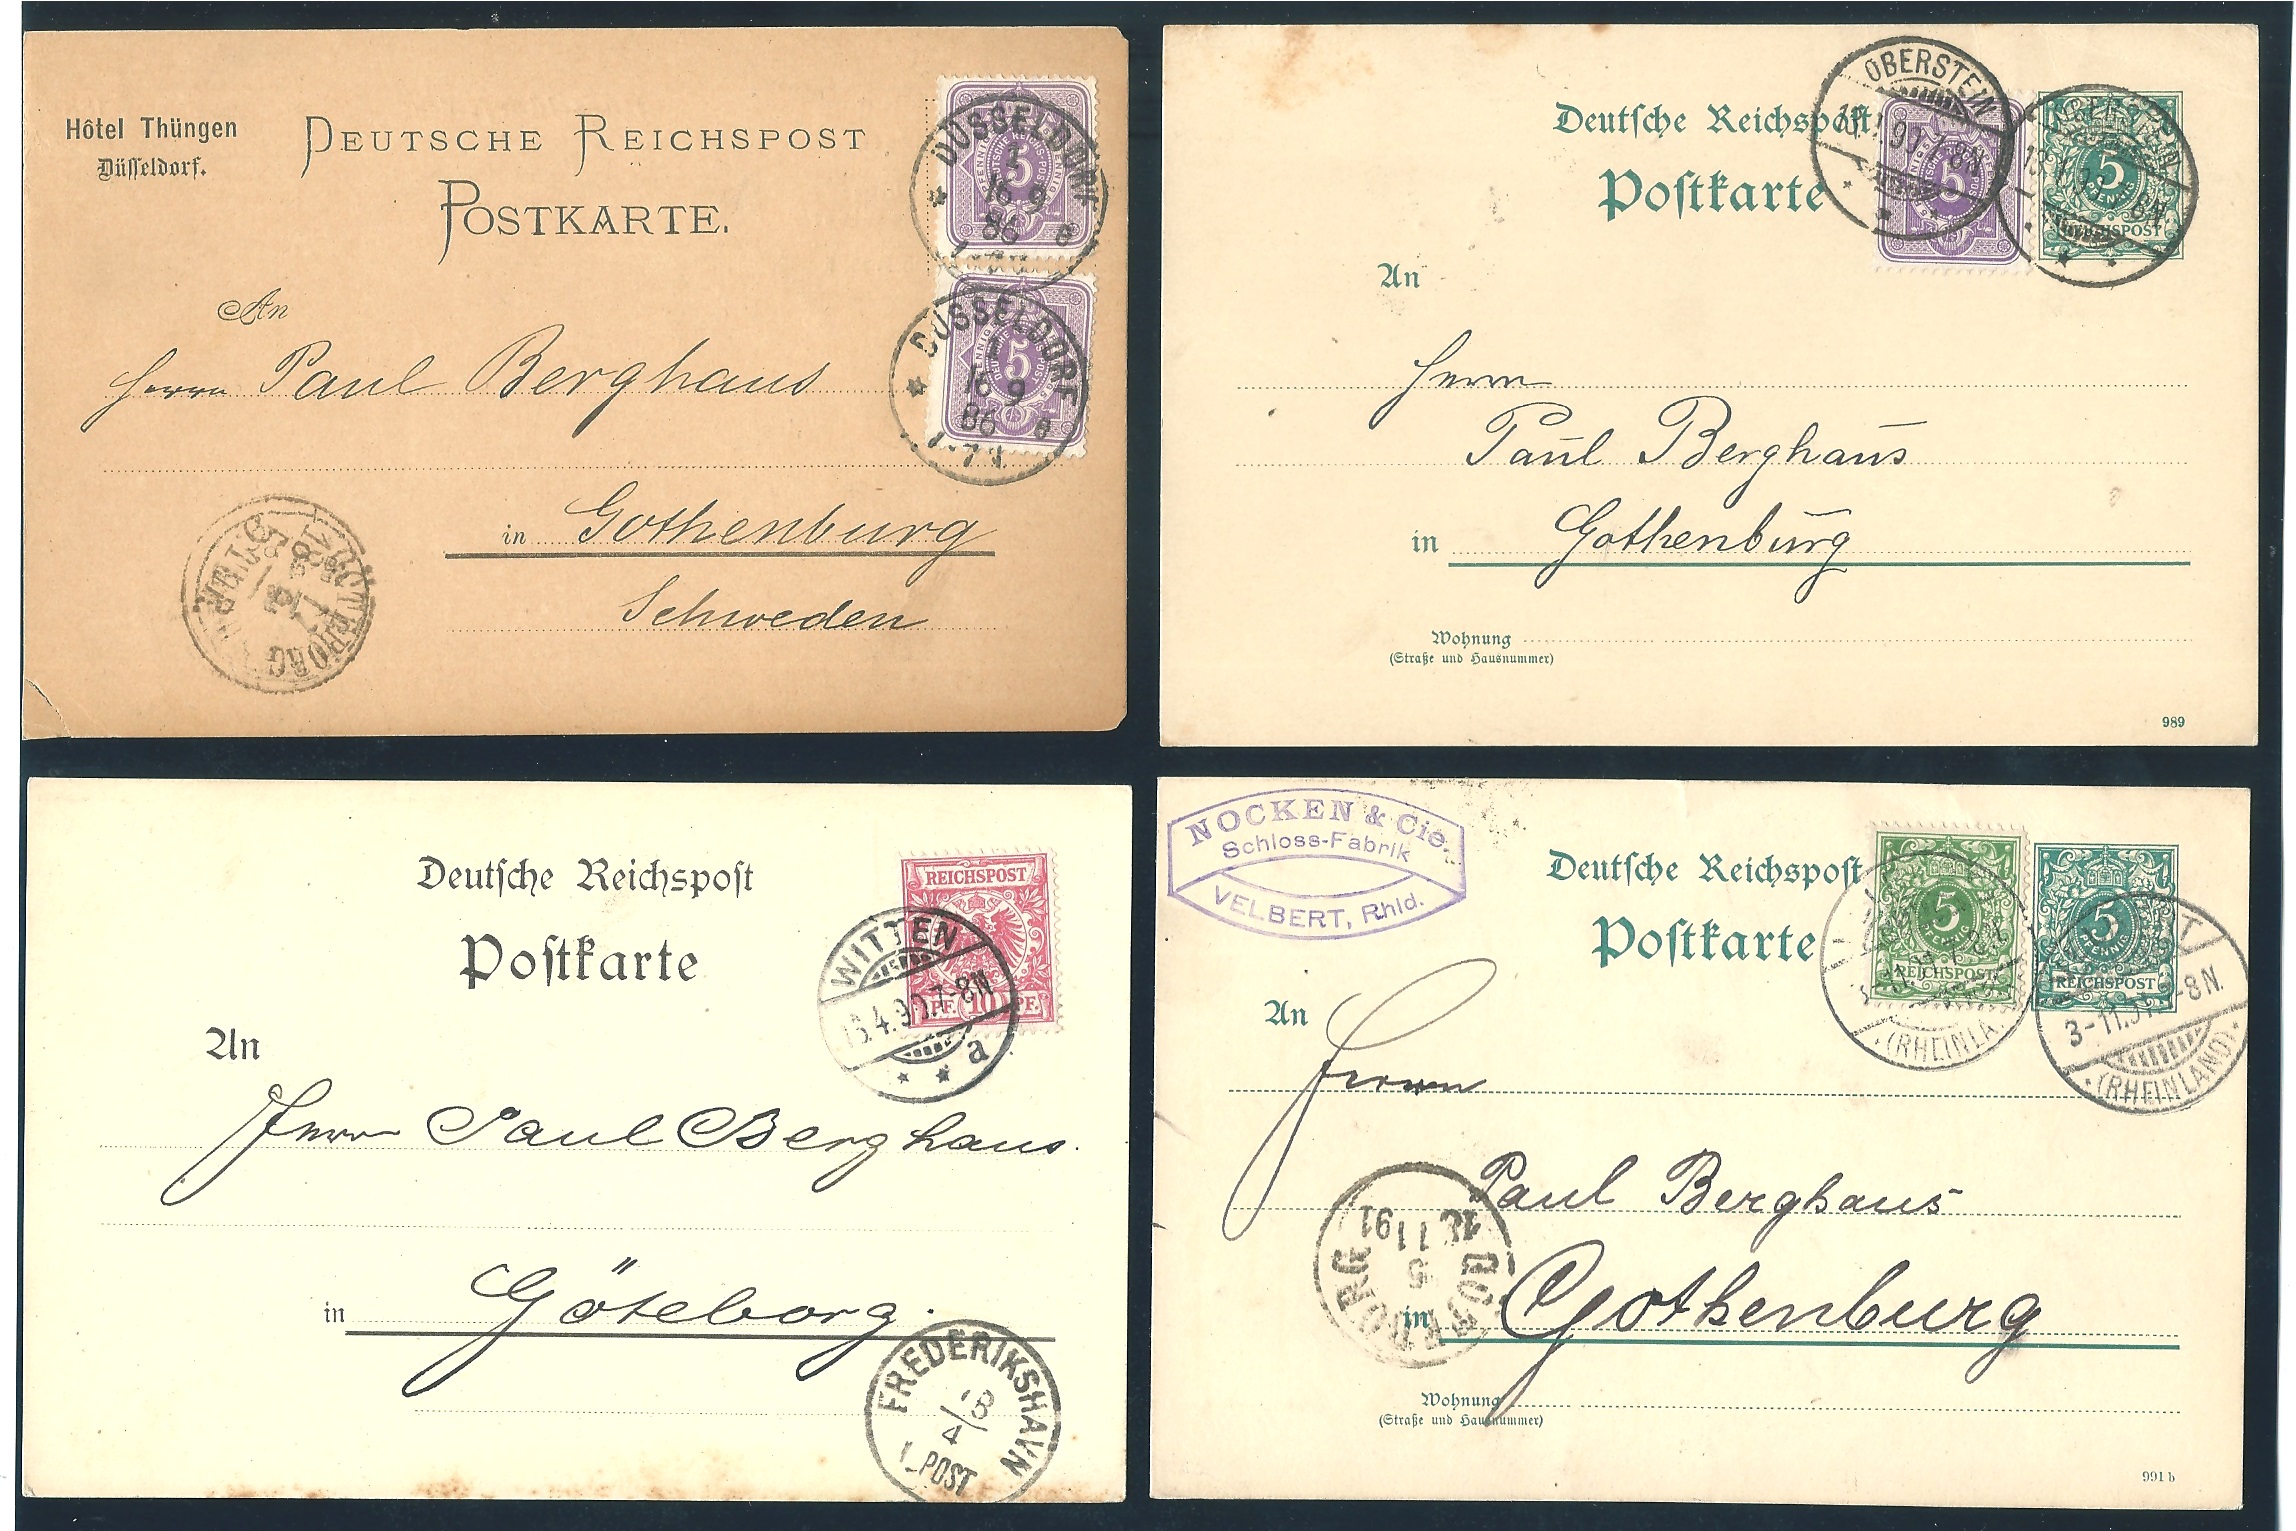 Hôtel Thüngen
Düsseldorf.
DEUTSCHE REICHSPOST
POSTKARTE.
DÜSSELDORF
1
16 9
86
8
5
DÜSSELDORF
1
16 9
86
8
5
An
Herrn Paul Berghaus
in Gothenburg
Schweden
Deutsche Reichspost
Postkarte
OBERSTEIN
7-8N
5
5
PFENNIG
REICHSPOST
An
Herrn
Paul Berghaus
in Gothenburg
Wohnung
(Straße und Hausnummer)
989
Deutsche Reichspost
Postkarte
REICHSPOST
PF. 10 PF.
WITTEN
4.90.7-8N.
a
An
Herrn Paul Berghaus.
in Göteborg.
FREDERIKSHAVN
18/4
POST
NOCKEN & Cie.
Schloss-Fabrik
VELBERT, Rhld.
Deutsche Reichspost
Postkarte
5
PFENNIG
REICHSPOST
5
PFENNIG
REICHSPOST
3-11.91. 7-8N.
(RHEINLAND)
An
Herrn
Paul Berghaus
in Gothenburg
5
11 91
Wohnung
(Straße und Hausnummer)
991 b